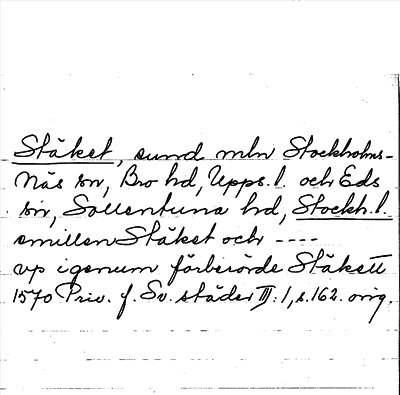 Stäket, sund mln Stockholms-
Näs sn, Bro hd, Upps. l. och Eds
sn, Sollentuna hd, Stockh. l.
emillan Stäket och ----
vp igenum förberörde Stäkett
1570 Priv. f. Sv. städer III: 1, s. 162. orig.